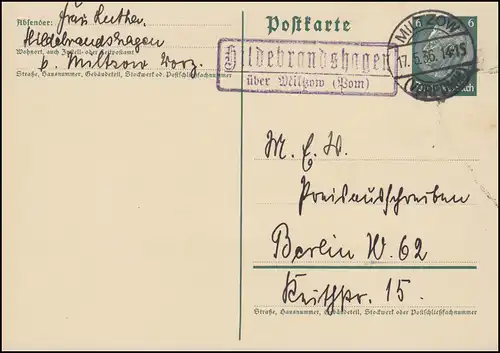 Absender: Frau Luther.
Hildebrandshagen
Wohnort, auch Zustell- oder Leitpostamt
b. Miltzow Vorp.
Straße, Hausnummer, Gebäudeteil, Stockwerk od. Postschließfachnummer
Postkarte
Hildebrandshagen
über Miltzow (Pom)
MILTZOW
17.5.36. 14-15
6 6
M. E. W.
Preisausschreiben
Berlin W. 62
Keithstr. 15.
Straße, Hausnummer, Gebäudeteil, Stockwerk oder Postschließfachnummer